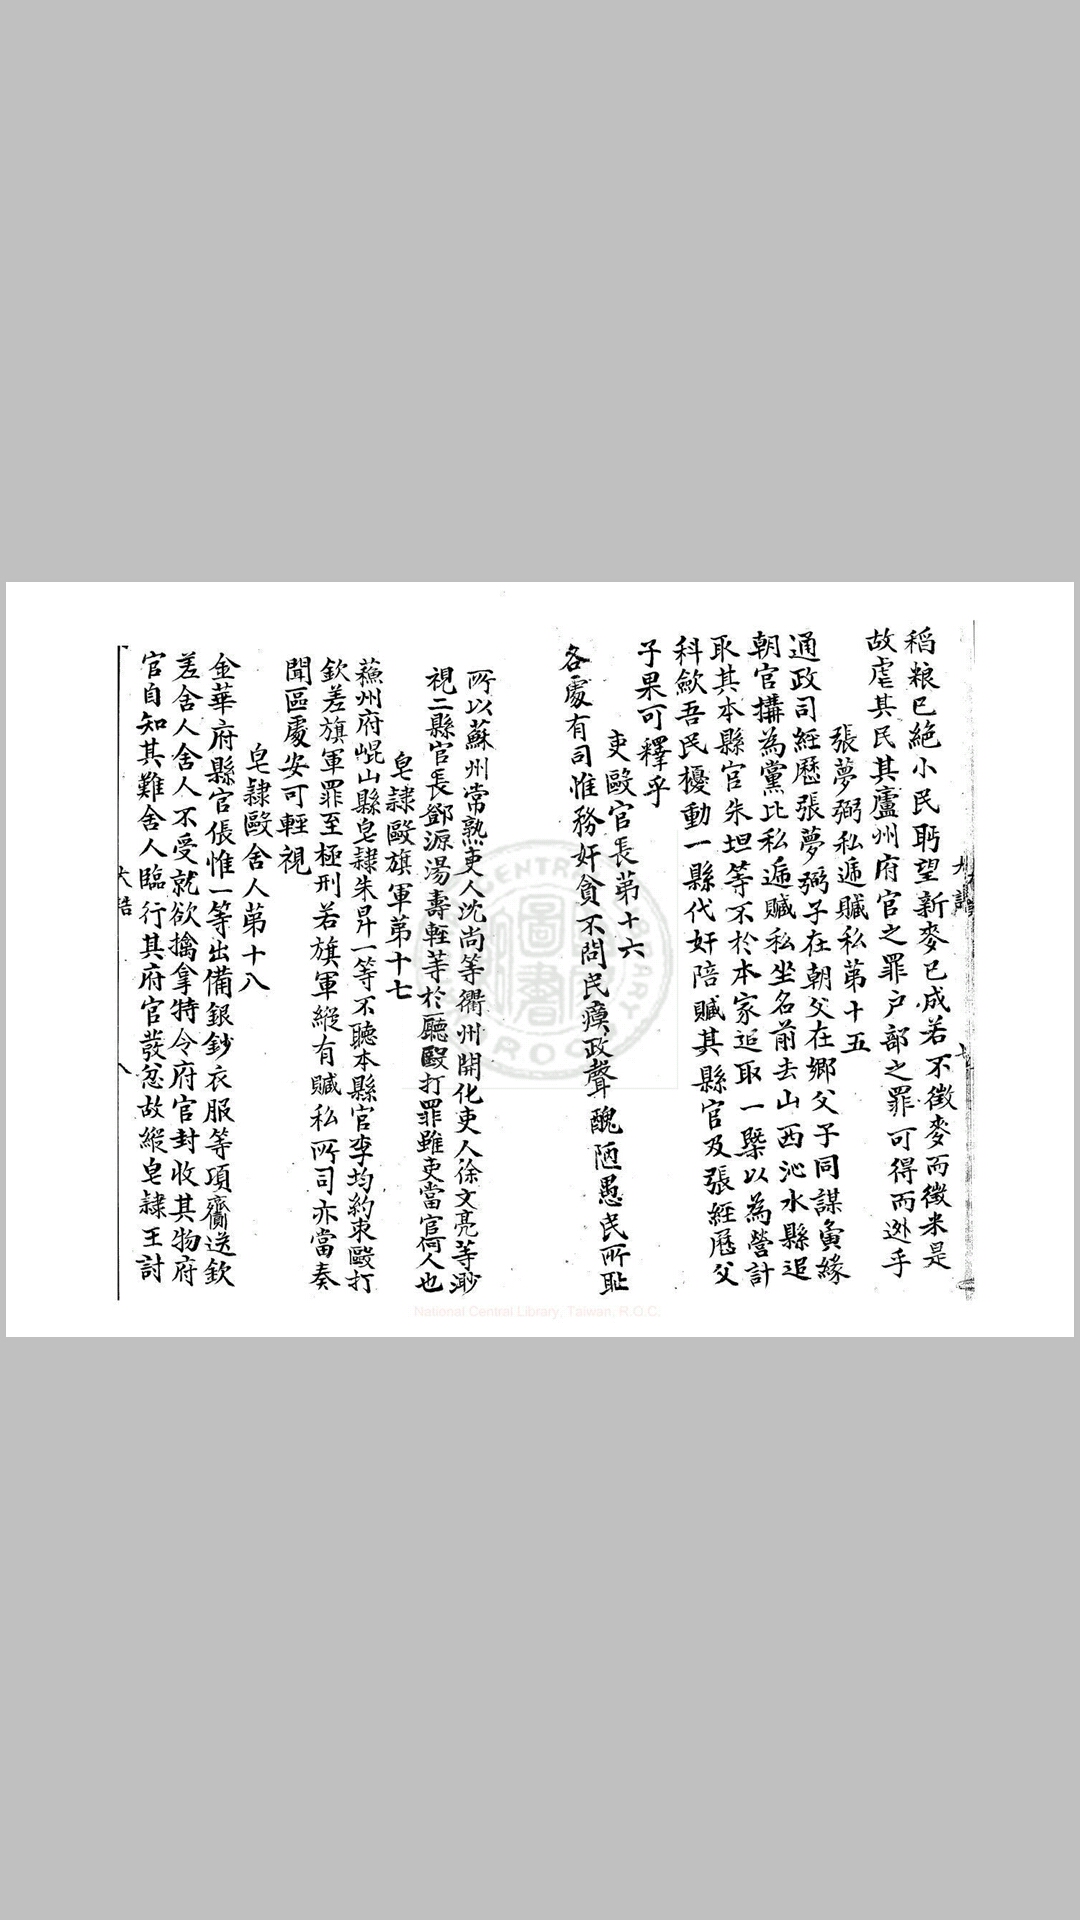 稻粮已絕小民眄望新麥已成若不徵麥而徵米是
故虐其民其廬州府官之罪户部之罪可得而逊乎
張夢弼私遞贓私第十五
通政司經歷張夢弼子在朝父在鄉父子同謀夤緣
朝官搆為黨比私遞贓私坐名前去山西沁水縣追
取其本縣官朱坦等不於本家追取一槩以為營計
科歛吾民擾動一縣代奸陪贓其縣官及張經歷父
子果可釋乎
吏毆官長第十六
各處有司惟務奸貪不問民瘼政聲醜陋愚民所耻
所以蘇州常熟吏人沈尚等衢州開化吏人徐文亮等渺
視二縣官長鄧源湯壽輕等於廳毆打罪雖吏當官何人也
皂隷毆旗軍第十七
蘓州府崐山縣皂隷朱昇一等不聽本縣官李均約束毆打
欽差旗軍罪至極刑若旗軍縱有贓私所司亦當奏
聞區處安可輕視
皂隷毆舍人第十八
金華府縣官張惟一等出備銀鈔衣服等項齎送欽
差舍人舍人不受就欲擒拿特令府官封收其物府
官自知其難舍人臨行其府官發忿故縱皂隷王討
大誥
八
National Central Library, Taiwan, R.O.C.